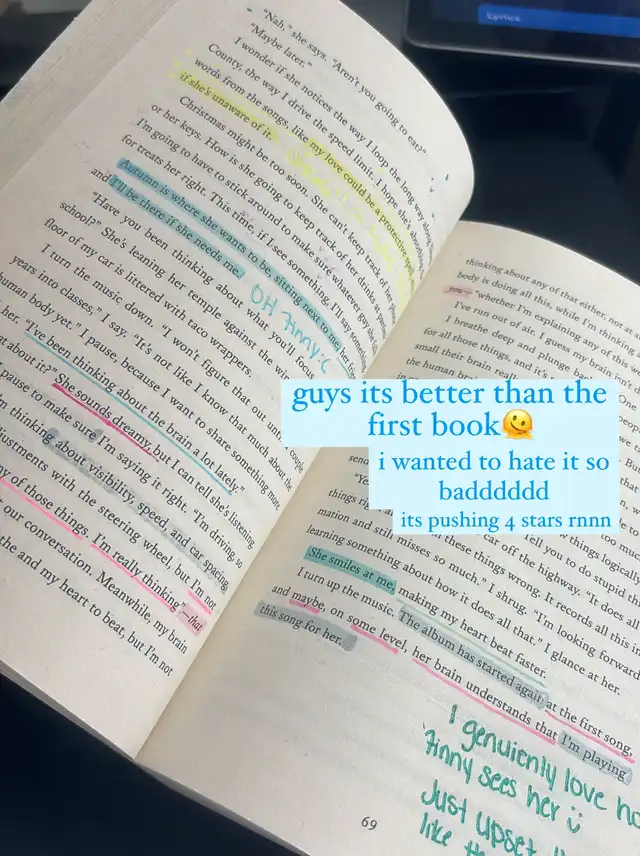 Lyrics
"Nah," she says. "Aren't you going to eat?"
"Maybe later."
I wonder if she notices the way I loop the long way along
County, the way I drive the speed limit. I hope she's absorbing
words from the songs, like my love could be a protective spell, even
if she's unaware of it.
Christmas might be too soon. She can't keep track of her phone
or her keys. How is she going to keep track of her drinks at
I'm going to have to stick around to make sure whatever guy she
for treats her right. This time, if I see something, I'll say something.
Autumn is where she wants to be, sitting next to me,
and I'll be there if she needs me.
OH Finny :C
"Have you been thinking about what you'll focus
school?" She's leaning her temple against the
floor of my car is littered with taco wrappers.
I turn the music down. "I won't figure that out until a couple
years into classes," I say. "It's not like I know that much about the
human body yet." I pause, because I want to share something more
her. "I've been thinking about the brain a lot lately."
at about it?" She sounds dreamy, but I can tell she's listening
pause to make sure I'm saying it right. "I'm driving, so
m thinking about visibility, speed, and car spacing,
justments with the steering wheel, but I'm not
ny of those things. I'm really thinking"—that
our conversation. Meanwhile, my brain
the and my heart to beat, but I'm not
thinking about any of that either, nor a
body is doing all this, while I'm thinking
you—"whether I'm explaining any of this we
I've run out of air. I guess my brain isn't
I breathe deep and plunge ba
for all those things, and it's
small their brain really
the human bra
guys its better than the
first book🫠
i wanted to hate it so
badddddd
its pushing 4 stars rnnn
send
"Ye
things right
these things wrong. It records all this in
mation and still misses so much." I shrug. "I'm looking forward
learning something about how it does all that." I glance at her.
She smiles at me, making my heart beat faster.
I turn up the music. The album has started again at the first song,
and maybe, on some level, her brain understands that I'm playing
this song for her.
I genuienly love ho
Finny sees her :)
Just upset
like th
69